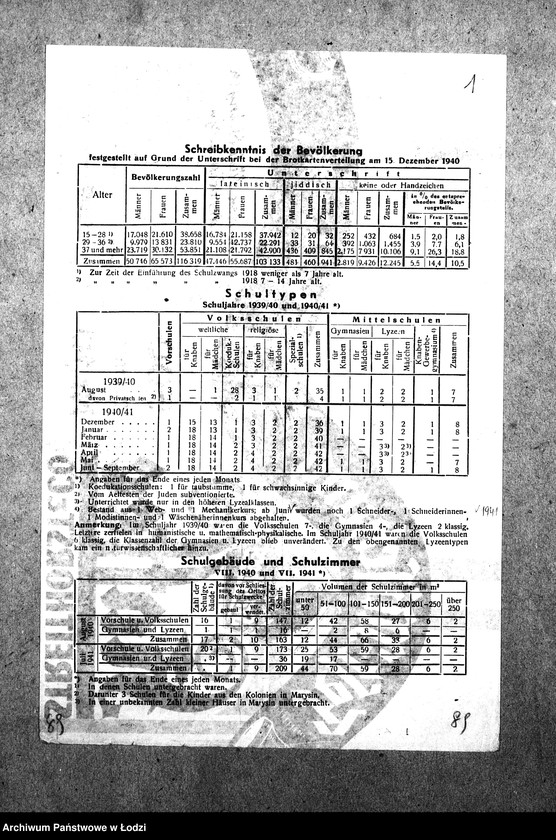 1
Schreibkenntnis der Bevölkerung
festgestellt auf Grund der Unterschrift bei der Brotkartenverteilung am 15. Dezember 1940
Alter | Bevölkerungszahl | Unterschrift
lateinisch | jiddisch | keine oder Handzeichen
in % des entsprechenden Bevölkerungsteils.
Männer | Frauen | Zusammen | Männer | Frauen | Zusammen | Männer | Frauen | Zusammen | Männer | Frauen | Zusammen | Männer | Frauen | Zusammen
15—28 ¹) 17.048 21.610 38.658 16.784 21.158 37.942 12 20 32 252 432 684 1.5 2.0 1.8
29—36 ²) 9.979 13.831 23.810 9.551 12.737 22.291 33 31 64 392 1.063 1.455 3.9 7.7 6.1
37 und mehr 23.719 30.132 53.851 21.108 21.792 42.900 436 409 845 2.175 7.931 10.106 9.1 26.3 18.8
Zusammen 50.746 65.573 116.319 47.446 55.687 103.133 481 460 941 2.819 9.426 12.245 5.5 14.4 10.5
¹) Zur Zeit der Einführung des Schulzwangs 1918 weniger als 7 Jahre alt.
²) " " " " " 1918 7—14 Jahre alt.
Schultypen
Schuljahre 1939/40 und 1940/41 *)
Vorschulen | Volksschulen | Mittelschulen
weltliche | religiöse | Spezialschulen ¹) | Zusammen | Gymnasien | Lyzeen | Knaben-Gewerbegymnasium ⁴) | Zusammen
für Knaben | für Mädchen | Koeduk.-Schulen | für Knaben | für Mädchen | für Knaben | für Mädchen | für Knaben | für Mädchen
1939/40
August 3 — 1 28 3 1 2 35 1 1 2 2 1 7
davon Privatschulen ²)
1940/41
Dezember 1 15 13 1 3 2 2 36 1 1 3 2 1 8
Januar 2 18 13 1 3 2 2 39 1 1 3 2 1 8
Februar 1 18 14 1 3 2 2 40
März 1 18 14 2 3 2 2 41
April 1 18 14 2 4 2 2 42
Mai 2 18 14 2 4 2 2 42
Juni—September 2 18 14 2 4 2 2 42
*) Angaben für das Ende eines jeden Monats.
¹) Koedukationsschulen: 1 für taubstumme, 1 für schwachsinnige Kinder.
²) Vom Aeltesten der Juden subventionierte.
³) Unterrichtet wurde nur in den höheren Lyzealklassen.
⁴) Bestand aus 1 Web- und 1 Mechanikerkurs; ab Juni wurden noch 1 Schneider-, 1 Schneiderinnen- 1941
1 Modistinnen- und 1 Wäschenäherinnenkurs abgehalten.
Anmerkung: Im Schuljahr 1939/40 waren die Volksschulen 7-, die Gymnasien 4-, die Lyzeen 2 klassig.
Letztere zerfielen in humanistische u. mathematisch-physikalische. Im Schuljahr 1940/41 waren die Volksschulen
6 klassig, die Klassenzahl der Gymnasien u. Lyzeen blieb unverändert. Zu den obengenannten Lyzeentypen
kam ein naturwissenschaftlicher hinzu.
Schulgebäude und Schulzimmer
VIII. 1940 und VII. 1941 *)
Zahl der Schulgebäude | davon vor Schliessung des Gettos für Schulzwecke | Zahl der Schulzimmer | Volumen der Schulzimmer in m³
gebaut | verwendet | unter 50 | 51—100 | 101—150 | 151—200 | 201—250 | über 250
August 1940 Vorschule u. Volksschulen 16 1 9 147 12 42 58 27 6 2
Gymnasien und Lyzeen
Zusammen 17 2 10 163 12 44 66 33 6 2
Juli 1941 Vorschule u. Volksschulen 20 ²) 1 9 173 25 53 59 28 6 2
Gymnasien und Lyzeen . ³) — — 36 19 17 — — — —
Zusammen . 1 9 209 44 70 59 28 6 2
*) Angaben für das Ende eines jeden Monats.
¹) In denen Schulen untergebracht waren.
²) Darunter 3 Schulen für die Kinder aus den Kolonien in Marysin.
³) In einer unbekannten Zahl kleiner Häuser in Marysin untergebracht.
89
89
Archiwum Państwowe w Łodzi